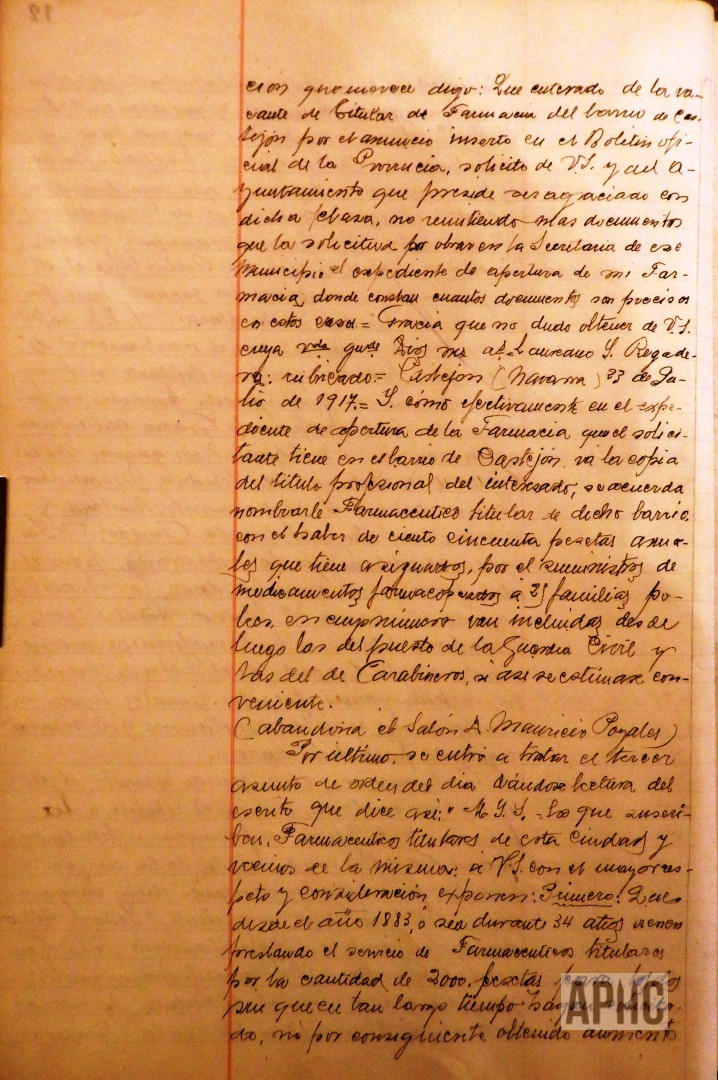 cion que merece digo: Que enterado de la va-
cante de Titular de Farmacia del barrio de Cas-
tejón por el anuncio inserto en el Boletin ofi-
cial de la Provincia, solicito de V.S. y del A-
yuntamiento que preside ser agraciado con
dicha plaza, no remitiendo mas documentos
que la solicitud por obrar en la Secretaria de ese
Municipio el expediente de apertura de mi Far-
macia, donde constan cuantos documentos son precisos
en estos casos.= Gracia que no dudo obtener de V.S.
cuya vda gude Dios ms as= Laureano S. Regade-
ra: rubricado.= Castejon (Navarra) 23 de Ju-
lio de 1917.= Y. cómo efectivamente en el expe-
diente de apertura de la Farmacia que el solici-
tante tiene en el barrio de Castejón, va la copia
del titulo profesional del interesado, se acuerda
nombrarle Farmaceutico titular de dicho barrio,
con el haber de ciento cincuenta pesetas anua-
les que tiene asignadas, por el suministros de
medicamentos farmacopeados a 25 familias po-
bres, en cuyo número van incluidas desde
luego las del puesto de la Guardia Civil y
las del de Carabineros, si asi se estimase con-
veniente.
(abandona el Salón D. Mauricio Pozales)
Por último, se entró a tratar el tercer
asunto de orden del dia dándose lectura del
escrito que dice asi: " M.Y.S. = Los que suscri-
ben, Farmaceuticos titulares de esta Ciudad y
vecinos de la misma: á V.S. con el mayor res-
peto y consideración exponen: Primero: Que
desde el año 1883, ó sea durante 34 años vienen
prestando el servicio de Farmaceuticos titulares
por la cantidad de 2000, pesetas para todos
sin que en tan largo tiempo hayan solicita-
do, ni por consiguiente obtenido aumento
APHC
12